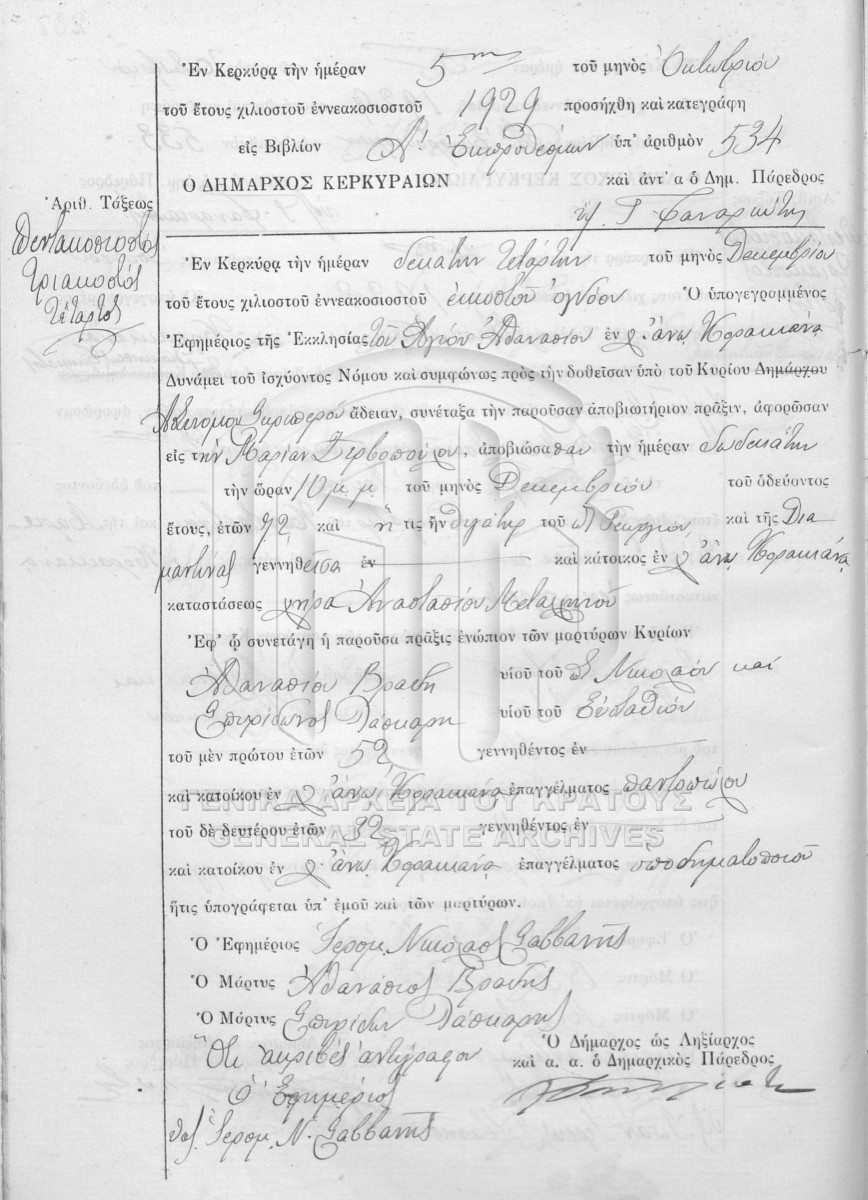 Ἐν Κερκύρᾳ τὴν ἡμέραν 5ην τοῦ μηνὸς Ὀκτωβρίου
τοῦ ἔτους χιλιοστοῦ ἐννεακοσιοστοῦ 1929 προσήχθη καὶ κατεγράφη
εἰς Βιβλίον Α' Ἐκπροθέσμων ὑπ' ἀριθμὸν 534
Ο ΔΗΜΑΡΧΟΣ ΚΕΡΚΥΡΑΙΩΝ καὶ ἀντ' α ὁ Δημ. Πάρεδρος
Ἀριθ. Τάξεως
Πεντακοσιοστὸς
τριακοστὸς
τέταρτος
Ἐν Κερκύρᾳ τὴν ἡμέραν δεκάτην τετάρτην τοῦ μηνὸς Δεκεμβρίου
τοῦ ἔτους χιλιοστοῦ ἐννεακοσιοστοῦ εἰκοστοῦ ὀγδόου Ὁ ὑπογεγραμμένος
Ἐφημέριος τῆς Ἐκκλησίας τοῦ Ἁγίου Ἀθανασίου ἐν Ἄνω Κορακιάνᾳ
Δυνάμει τοῦ ἰσχύοντος Νόμου καὶ συμφώνως πρὸς τὴν δοθεῖσαν ὑπὸ τοῦ Κυρίου Δημάρχου
Ἀστυνόμου Σκριπεροῦ ἄδειαν, συνέταξα τὴν παροῦσαν ἀποβιωτήριον πρᾶξιν, ἀφορῶσαν
εἰς τὴν Μαρίαν, ἀποβιώσασαν τὴν ἡμέραν δωδεκάτην
τὴν ὥραν 10 μ μ τοῦ μηνὸς Δεκεμβρίου τοῦ ὁδεύοντος
ἔτους, ἐτῶν 72 καὶ ἥτις ἦν θυγάτηρ τοῦ Γεωργίου καὶ τῆς Δια
μαντίνας γεννηθεῖσα ἐν καὶ κάτοικος ἐν Ἄνω Κορακιάνᾳ
καταστάσεως χήρα Ἀναστασίου Μεταλληνοῦ
Ἐφ' ᾧ συνετάγη ἡ παροῦσα πρᾶξις ἐνώπιον τῶν μαρτύρων Κυρίων
Ἀθανασίου Βραδῆ υἱοῦ τοῦ Νικολάου καὶ
Σπυρίδωνος Λάσκαρη υἱοῦ τοῦ Εὐσταθίου
τοῦ μὲν πρώτου ἐτῶν 52 γεννηθέντος ἐν
καὶ κατοίκου ἐν Ἄνω Κορακιάνᾳ ἐπαγγέλματος παντοπώλου
ΓΕΝΙΚΑ ΑΡΧΕΙΑ ΤΟΥ ΚΡΑΤΟΥΣ
τοῦ δὲ δευτέρου ἐτῶν 32 γεννηθέντος ἐν
GENERAL STATE ARCHIVES
καὶ κατοίκου ἐν Ἄνω Κορακιάνᾳ ἐπαγγέλματος ὑποδηματοποιοῦ
ἥτις ὑπογράφεται ὑπ' ἐμοῦ καὶ τῶν μαρτύρων.
Ὁ Ἐφημέριος Ἱερομ. Νικόλαος Σαββανῆς
Ὁ Μάρτυς Ἀθανάσιος Βραδῆς
Ὁ Μάρτυς Σπυρίδων Λάσκαρης
Ὅτι ἀκριβὲς ἀντίγραφον
Ὁ Ἐφημέριος
Ἱερομ. Ν. Σαββανῆς
Ὁ Δήμαρχος ὡς Ληξίαρχος
καὶ α. α. ὁ Δημαρχικὸς Πάρεδρος